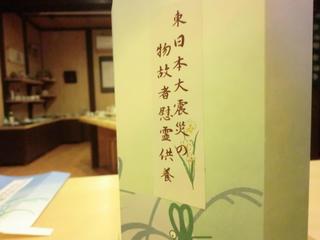 東日本大震災の
物故者慰霊供養